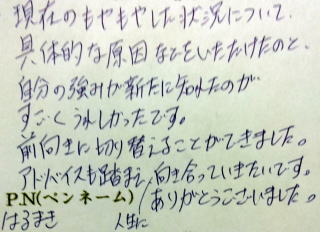 現在のもやもやした状況について、
具体的な原因などをいただけたのと、
自分の強みが新たに知れたのが
すごくうれしかったです。
前向きに切り替えることができました。
アドバイスも踏まえ、向き合っていきたいです。
P.N(ペンネーム) ありがとうございました。
はるまき 人生に